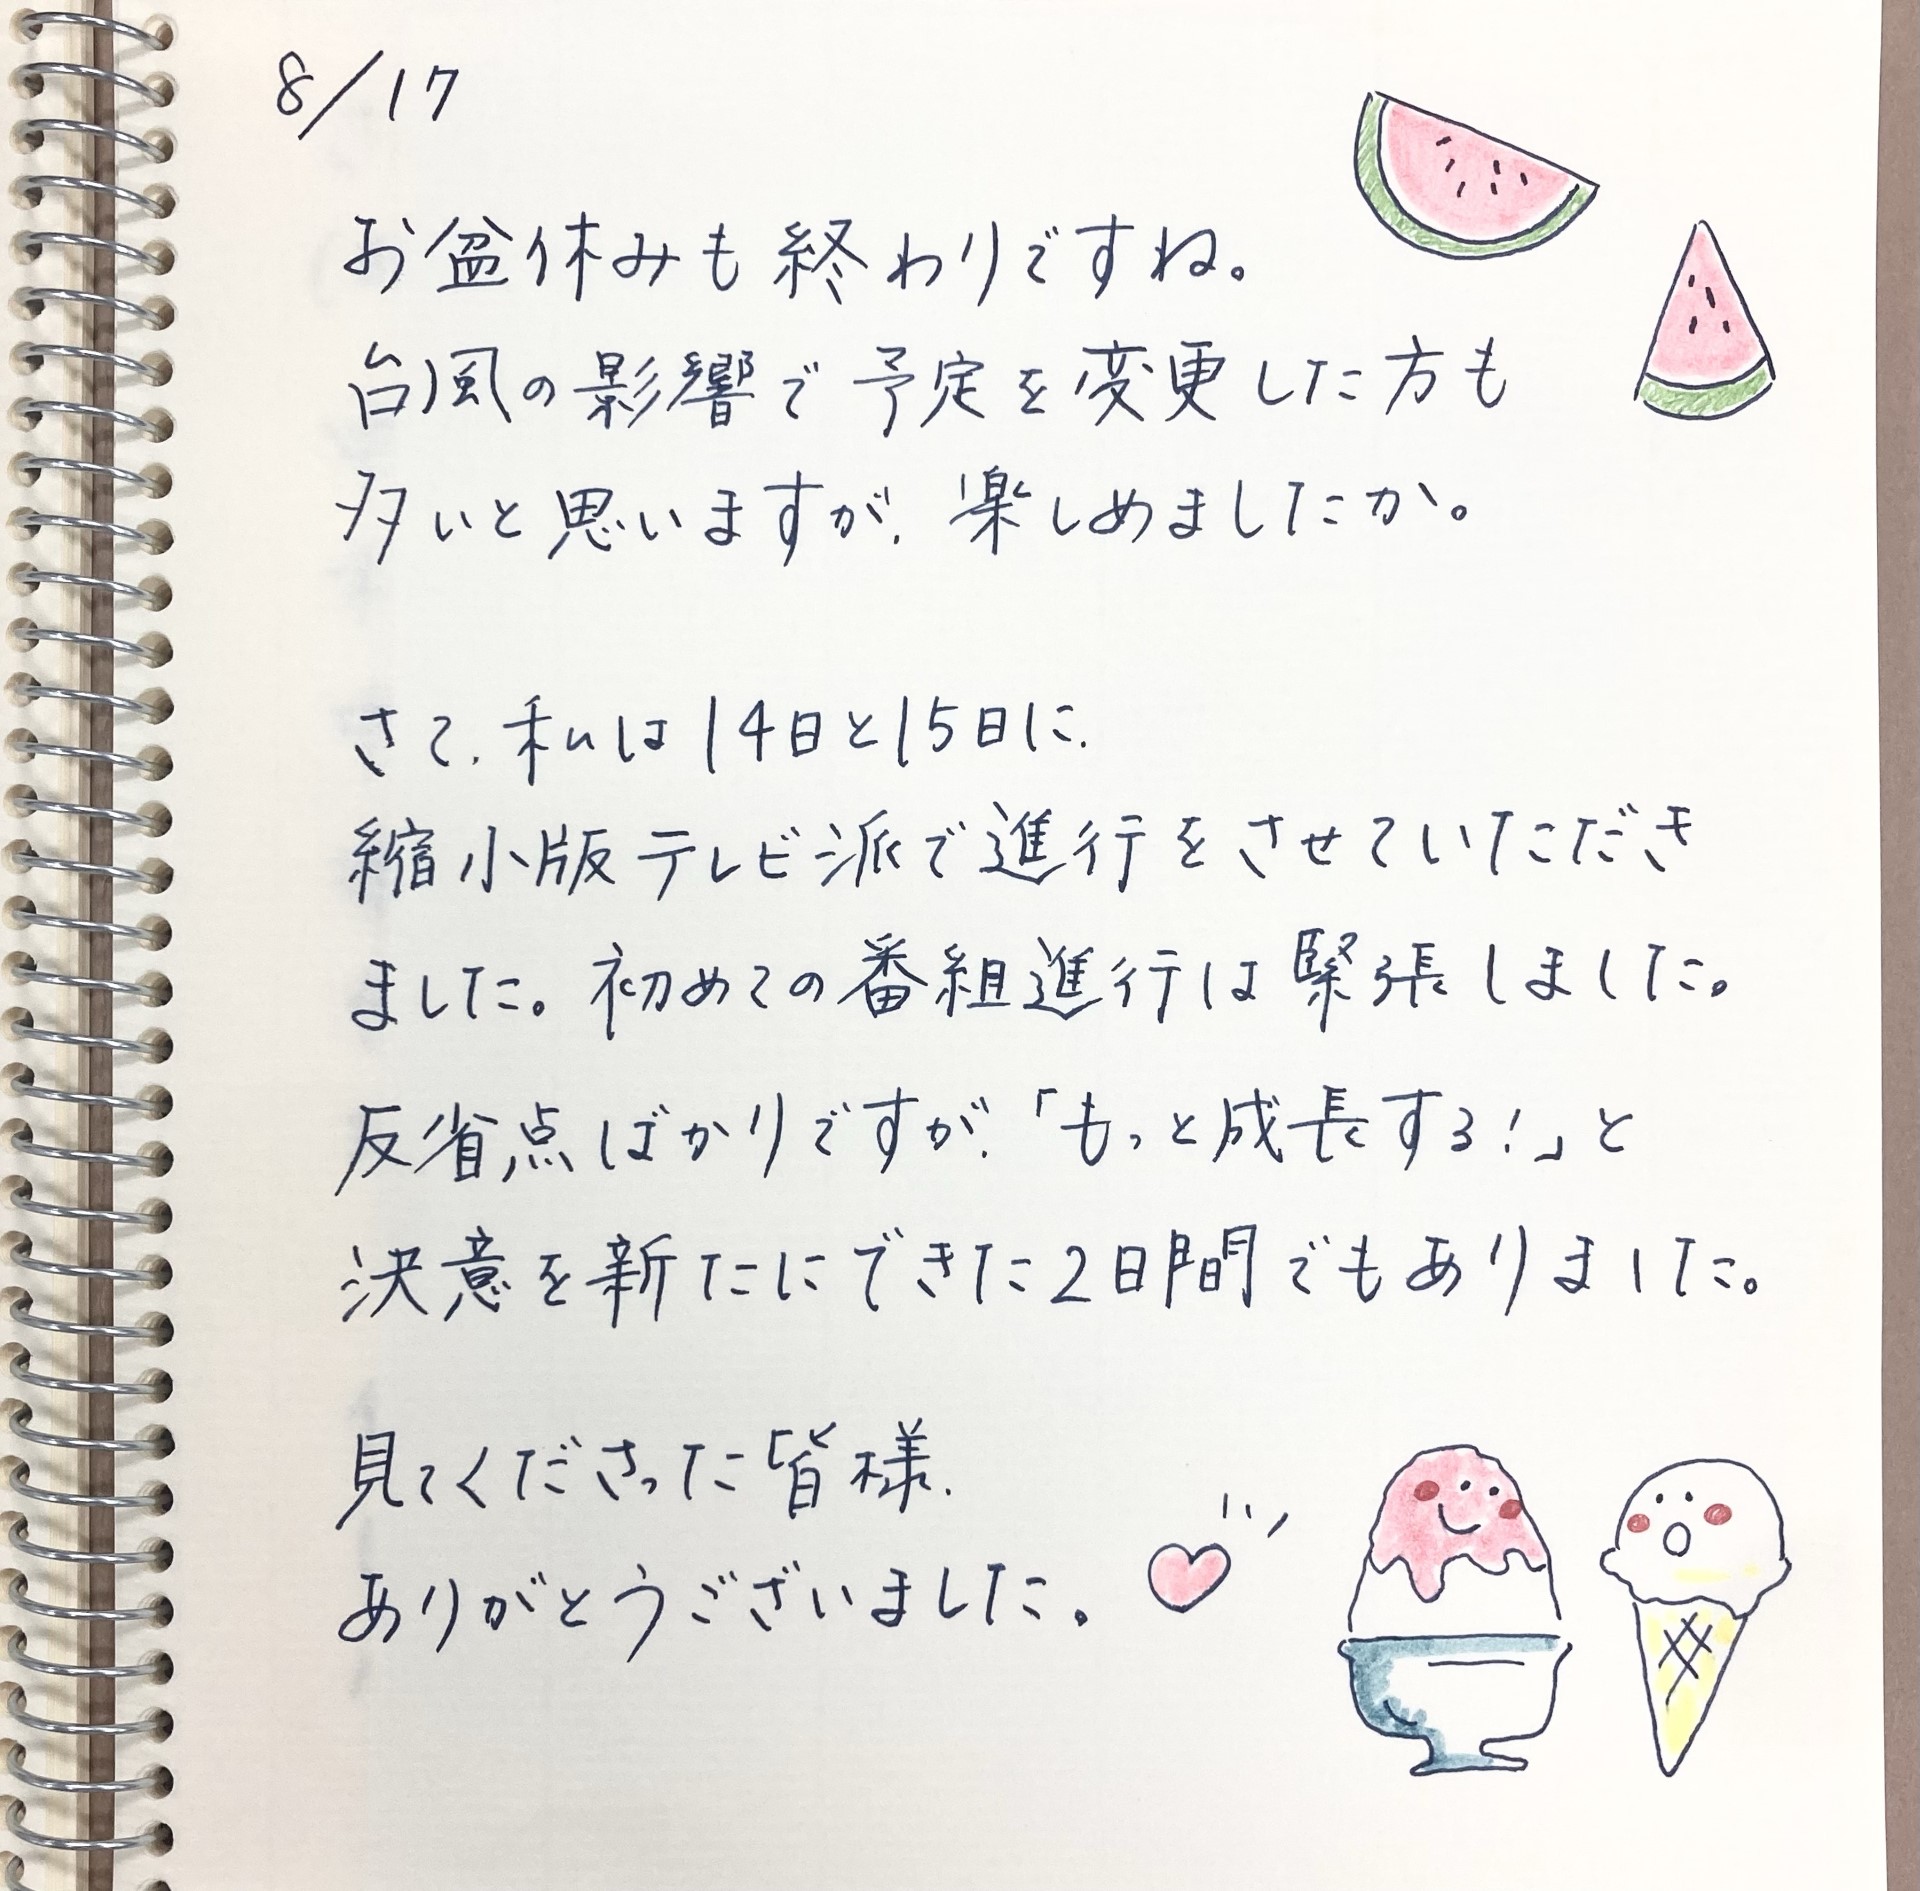 8/17
お盆休みも終わりですね。
台風の影響で予定を変更した方も
多いと思いますが、楽しめましたか。
さて、私は14日と15日に、
縮小版テレビ派で進行をさせていただき
ました。初めての番組進行は緊張しました。
反省点ばかりですが、「もっと成長する!」と
決意を新たにできた2日間でもありました。
見てくださった皆様、
ありがとうございました。